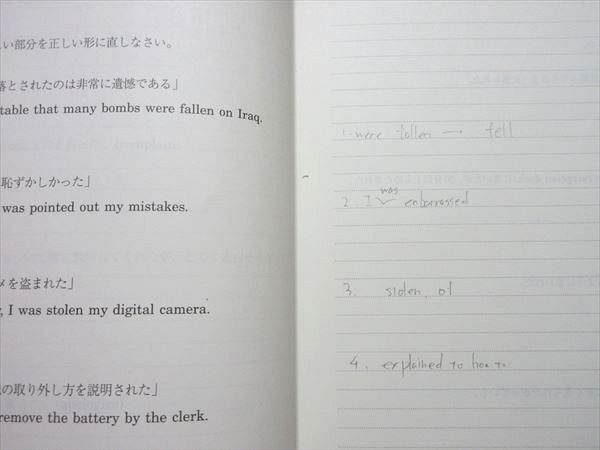 い部分を正しい形に直しなさい。
落とされたのは非常に遺憾である」
table that many bombs were fallen on Iraq.
恥ずかしかった」
was pointed out my mistakes.
メを盗まれた」
I was stolen my digital camera.
の取り外し方を説明された」
remove the battery by the clerk.
1. were fallen → fell
2. I was embarrassed
3. stolen of
4. explained to how to